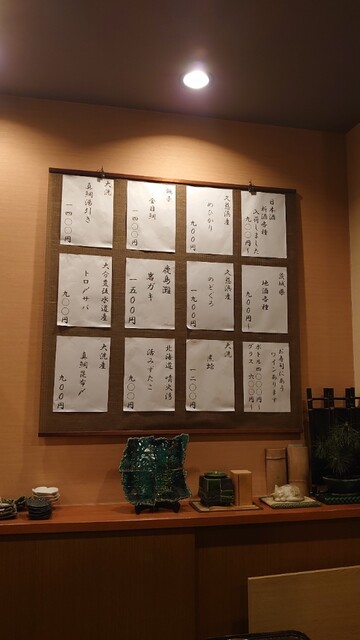 日本酒
新酒各種
入荷しました
九〇〇円〜
久慈濱産
めひかり
九〇〇円
銚子
金目鯛
一四〇〇円
大洗
真鯛湯引き
一四〇〇円
茨城県
地酒各種
九〇〇円〜
久慈濱産
のどぐろ
一九〇〇円
鹿島灘
岩ガキ
一五〇〇円
大分豊後水道産
トロ〆サバ
九〇〇円
お寿司にあう
ワインあります
グラス
大洗
煮蛤
一二〇〇円
北海道噴火湾
活みずたこ
九〇〇円
大洗産
真鯛昆布〆
九〇〇円